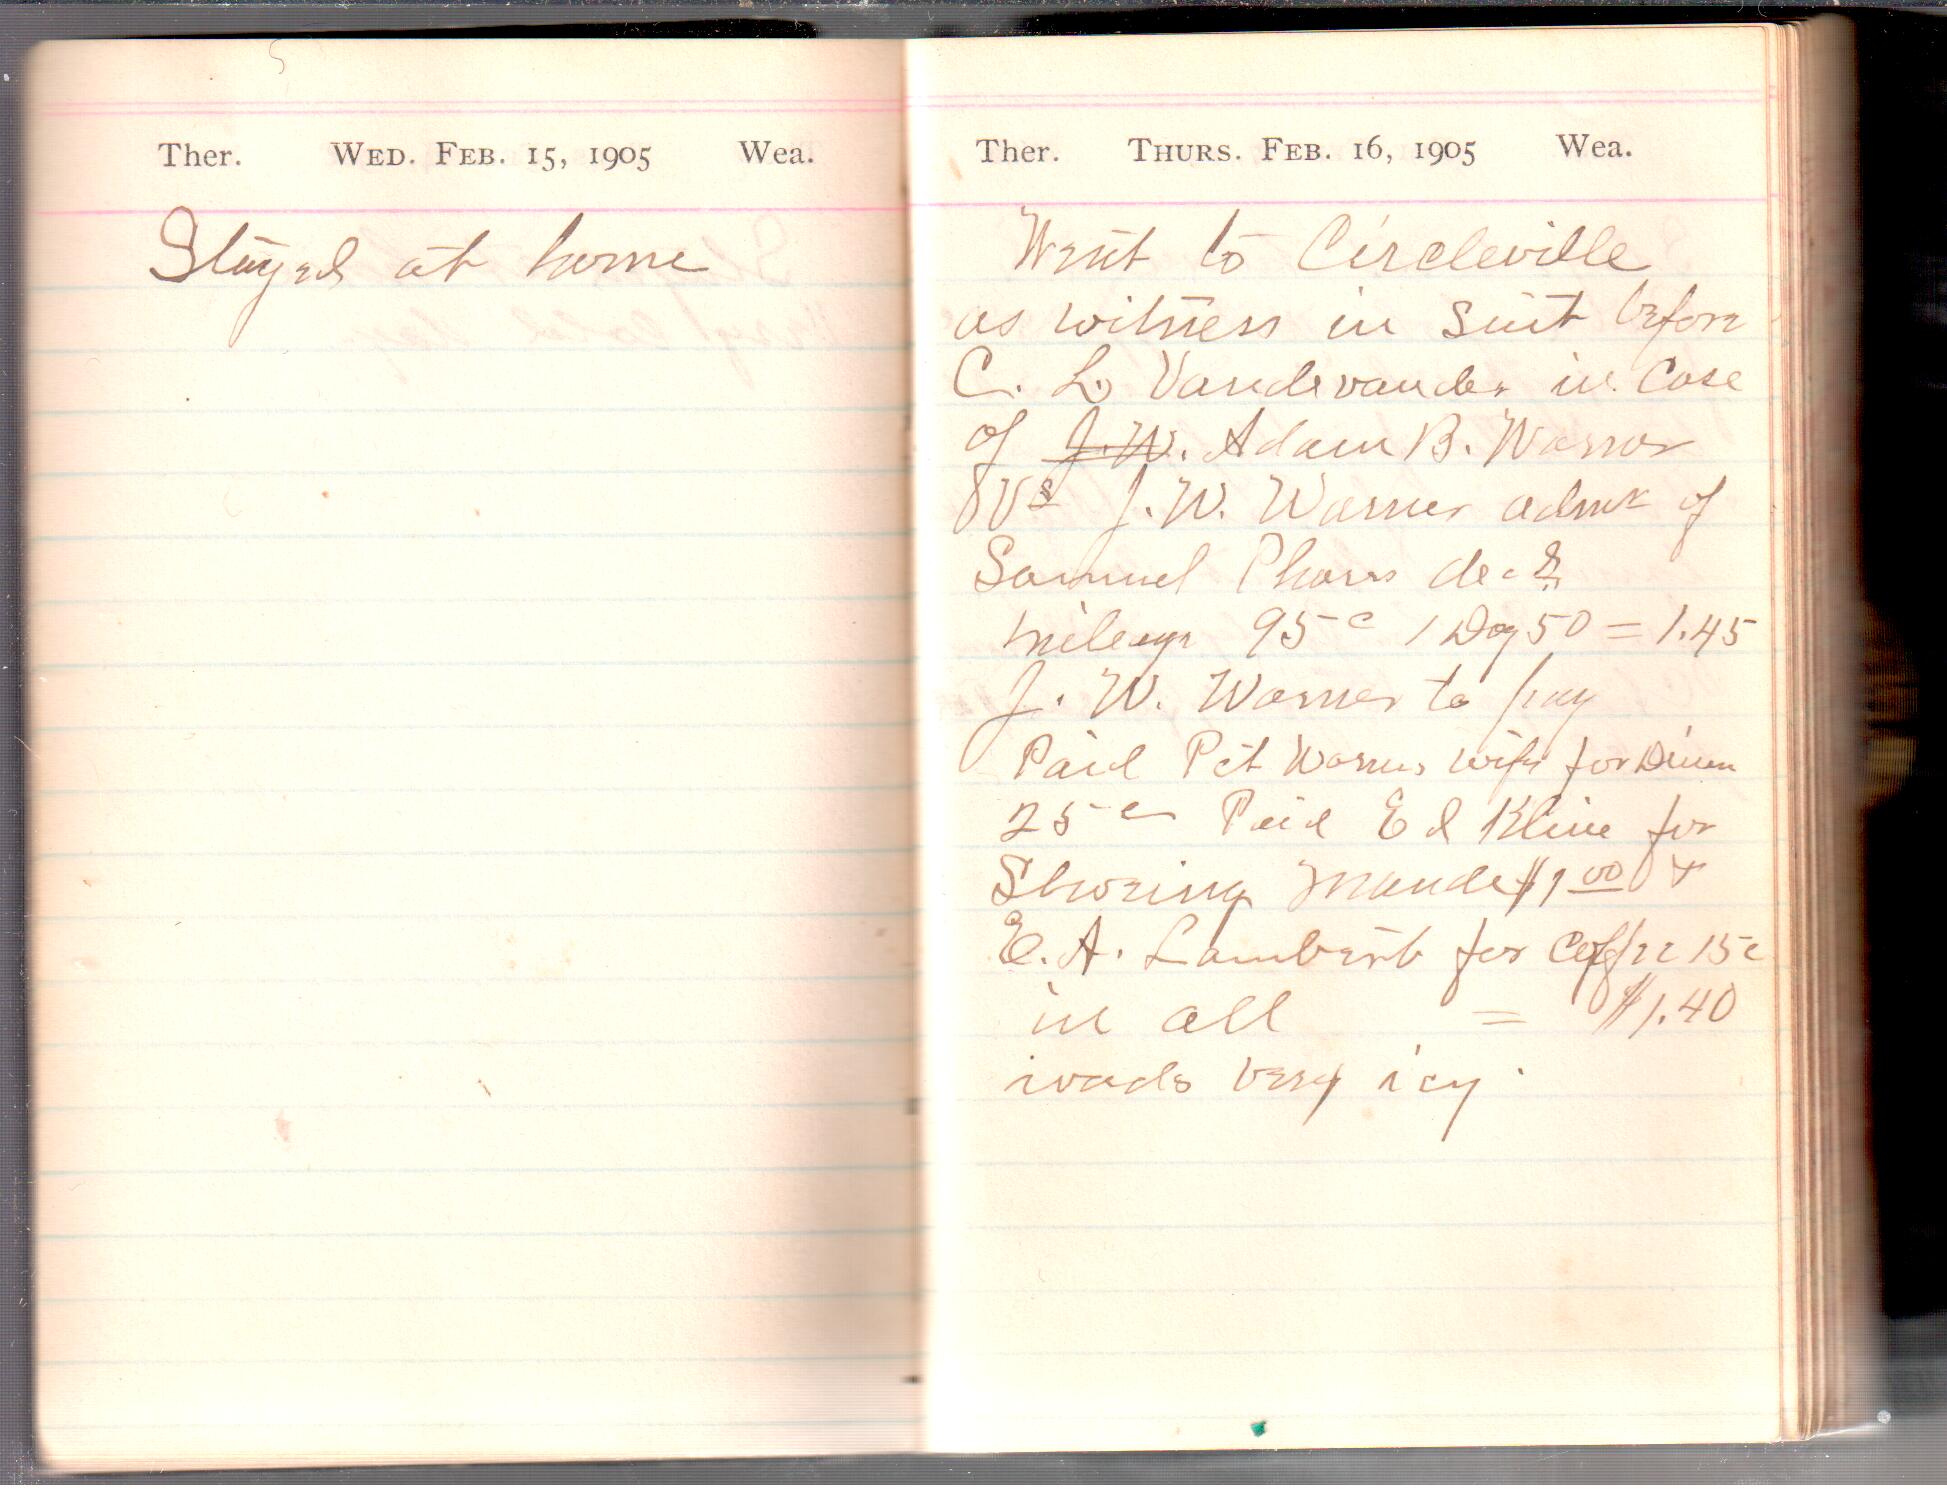 Ther. Wed. Feb. 15, 1905 Wea.
Stayed at home
Ther. Thurs. Feb. 16, 1905 Wea.
Went to Circleville
as witness in Suit before
C. L. Vandevander in Case
of J. W. Adam B. Warner
vs J. W. Warner admr of
Samuel Phares
mileage 95c 1 Day 50 = 1.45
J. W. Warner to pay
Paid Pet Warners wife for Dinner
25c Paid Ed Kline for
Shoeing Maude $1 00 &
E. A. Lambert for Coffee 15c
in all = $1.40
roads very icy.